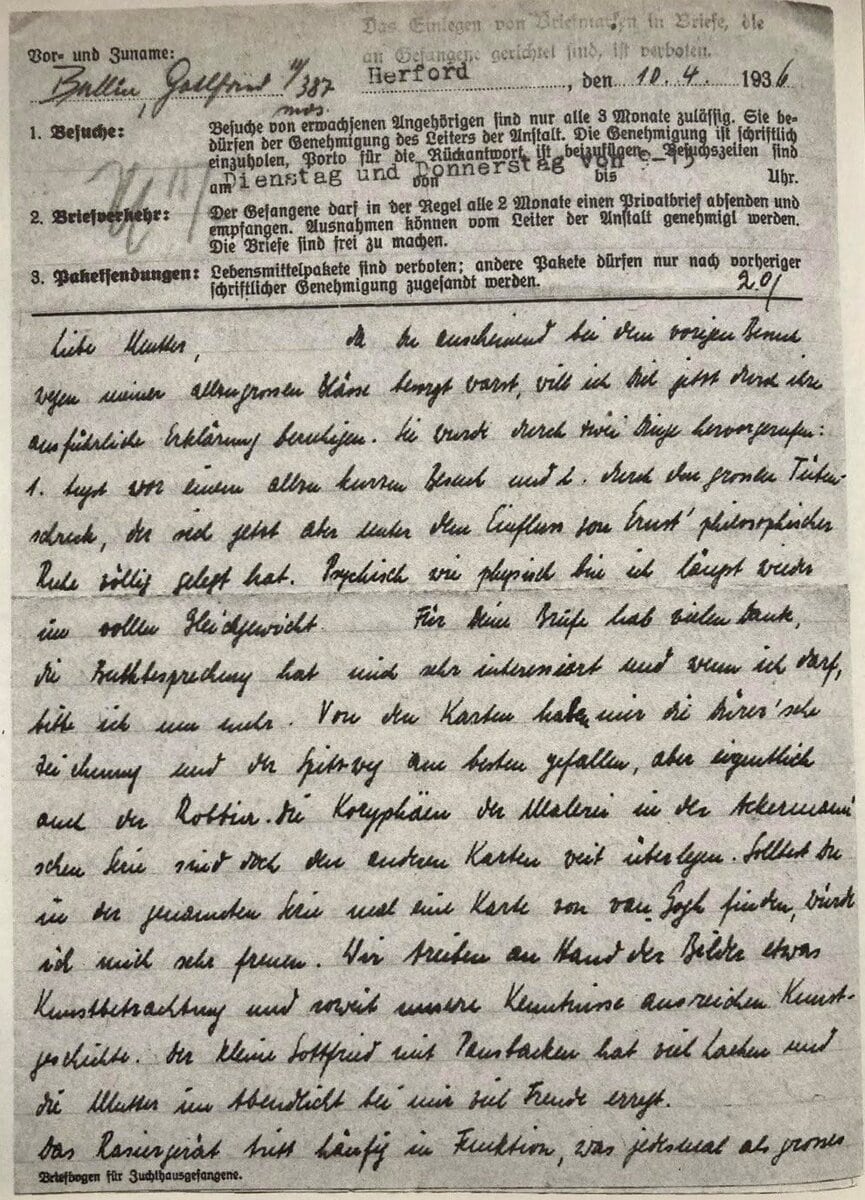 Das Einlegen von Briefmarken in Briefe, die
an Gefangene gerichtet sind, ist verboten.
Vor- und Zuname:
Ballin, Gottfried II/387
Herford, den 10. 4. 1936
mos.
1. Besuche: Besuche von erwachsenen Angehörigen sind nur alle 3 Monate zulässig. Sie be-
dürfen der Genehmigung des Leiters der Anstalt. Die Genehmigung ist schriftlich
einzuholen, Porto für die Rückantwort ist beizufügen. Besuchszeiten sind
am Dienstag und Donnerstag von bis Uhr.
2. Briefverkehr: Der Gefangene darf in der Regel alle 2 Monate einen Privatbrief absenden und
empfangen. Ausnahmen können vom Leiter der Anstalt genehmigt werden.
Die Briefe sind frei zu machen.
3. Paketsendungen: Lebensmittelpakete sind verboten; andere Pakete dürfen nur nach vorheriger
schriftlicher Genehmigung zugesandt werden.
Liebe Mutter, da Du anscheinend bei dem vorigen Besuch
wegen meiner allzugrossen Blässe besorgt warst, will ich Dich jetzt durch ihre
ausführliche Erklärung beruhigen. Sie wurde durch zwei Dinge hervorgerufen:
1. Angst vor einem allzu kurzen Besuch und 2. durch den grossen Tüten-
schreck, der sich jetzt aber unter dem Einfluss von Ernst' philosophischer
Ruhe völlig gelegt hat. Psychisch wie physisch bin ich längst wieder
im vollen Gleichgewicht. Für Deine Briefe hab vielen Dank,
die Buchbesprechung hat mich sehr interessiert und wenn ich darf,
bitte ich um mehr. Von den Karten haben mir die Dürer'sche
Zeichnung und der Spitzweg am besten gefallen, aber eigentlich
auch der Robbia. Die Koryphäen der Malerei in der Ackermann'
schen Serie sind doch den anderen Karten weit überlegen. Solltest Du
in der genannten Serie mal eine Karte von van Gogh finden, würde
ich mich sehr freuen. Wir treiben an Hand der Bilder etwas
Kunstbetrachtung und soweit unsere Kenntnisse ausreichen Kunst-
geschichte. Der kleine Gottfried mit Pausbacken hat viel Lachen und
die Mutter im Abendlicht bei mir viel Freude erregt.
Das Rasiergerät tritt häufig in Funktion, was jedesmal als grosses
Briefbogen für Zuchthausgefangene.